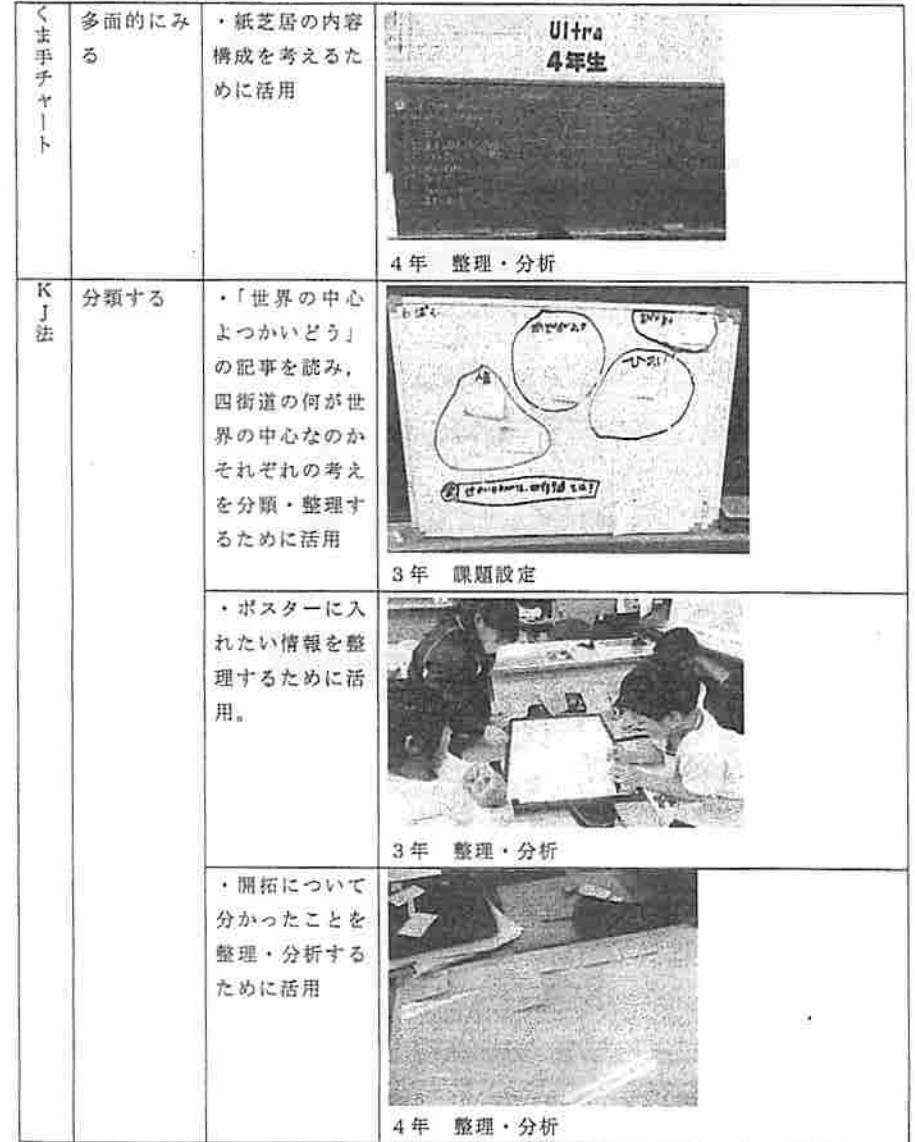 くま手チャート
多面的にみ
る
・紙芝居の内容
構成を考えるた
めに活用
Ultra
4年生
4年 整理・分析
KJ法
分類する
・「世界の中心
よつかいどう」
の記事を読み,
四街道の何が世
界の中心なのか
それぞれの考え
を分類・整理す
るために活用
3年 課題設定
・ポスターに入
れたい情報を整
理するために活
用。
3年 整理・分析
・開拓について
分かったことを
整理・分析する
ために活用
4年 整理・分析